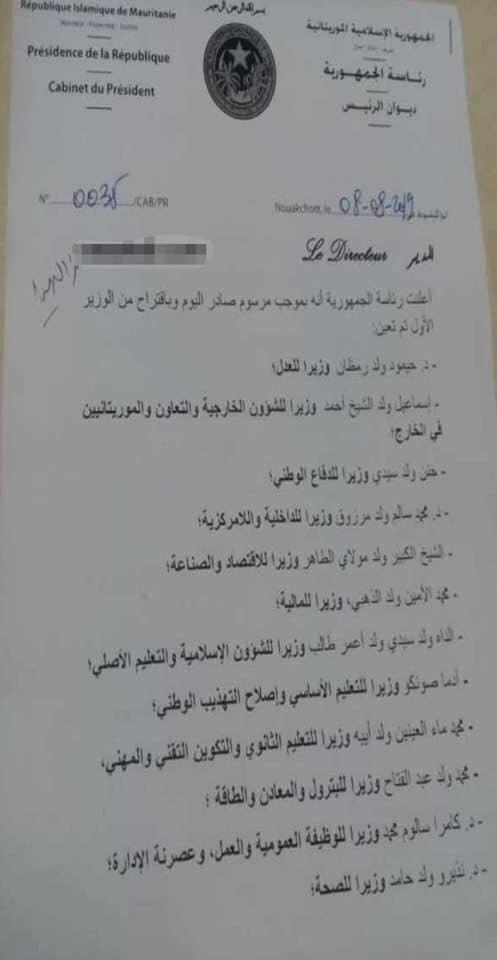 بسم الله الرحمن الرحيم
République Islamique de Mauritanie
الجمهورية الإسلامية الموريتانية
Honneur - Fraternité - Justice
Présidence de la République
رئاسة الجمهورية
Cabinet du Président
ديوان الرئيس
N° 0035 /CAB/PR
Nouakchott, le 08-08-2019 انواكشوط في
Le Directeur المدير
أعلنت رئاسة الجمهورية أنه بموجب مرسوم صادر اليوم وباقتراح من الوزير
الأول تم تعين:
- د. حيمود ولد رمظان وزيرا للعدل؛
- إسماعيل ولد الشيخ أحمد وزيرا للشؤون الخارجية والتعاون والموريتانيين
في الخارج؛
- حنن ولد سيدي وزيرا للدفاع الوطني؛
- د. محمد سالم ولد مرزوق وزيرا للداخلية واللامركزية؛
- الشيخ الكبير ولد مولاي الطاهر وزيرا للاقتصاد والصناعة؛
- محمد الأمين ولد الذهبي، وزيرا للمالية؛
- الداه ولد سيدي ولد أعمر طالب وزيرا للشؤون الإسلامية والتعليم الأصلي؛
- أدما صونكو وزيرا للتعليم الأساسي وإصلاح التهذيب الوطني؛
- محمد ماء العينين ولد أييه وزيرا للتعليم الثانوي والتكوين التقني والمهني،
- محمد ولد عبد الفتاح وزيرا للبترول والمعادن والطاقة ؛
- د. كامرا سالوم محمد وزيرا للوظيفة العمومية والعمل، وعصرنة الإدارة؛
- د. نذيرو ولد حامد وزيرا للصحة؛